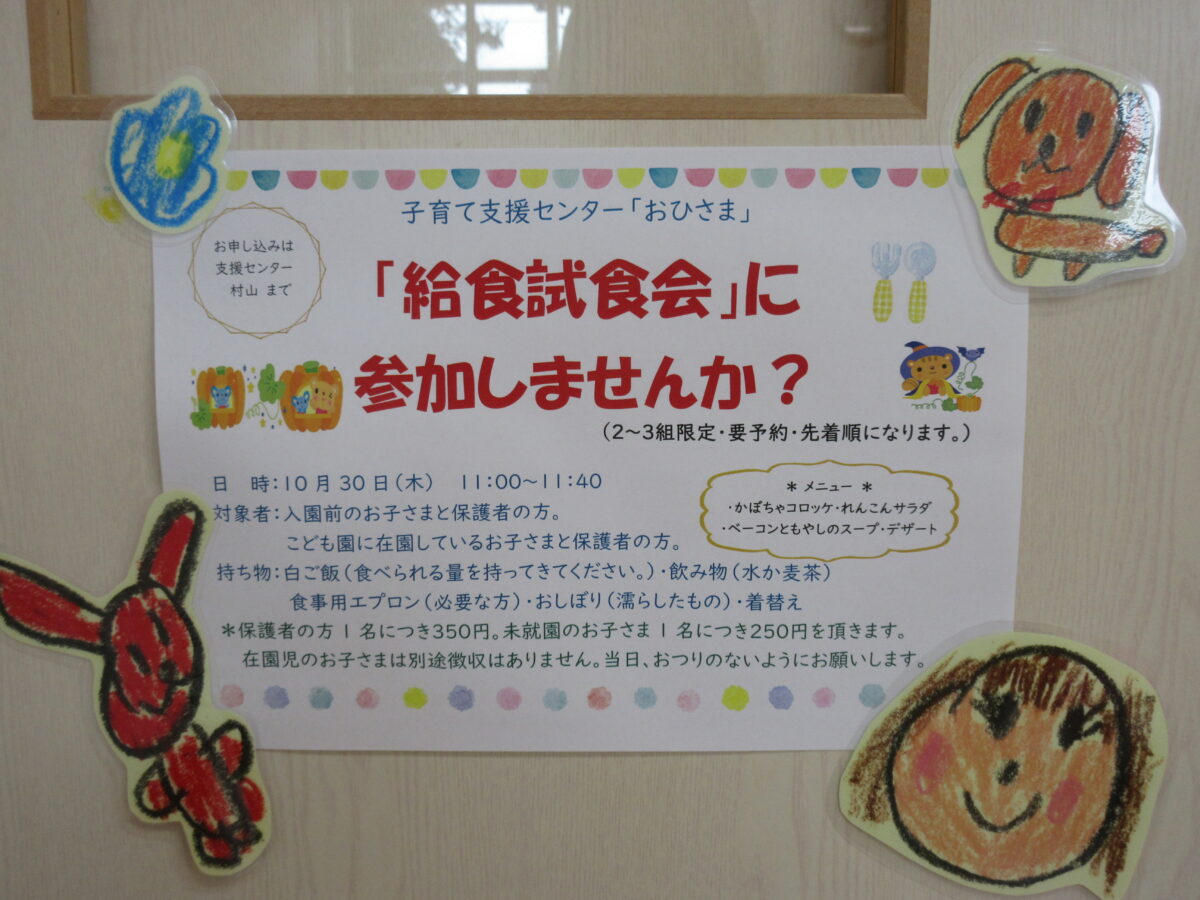 子育て支援センター「おひさま」
お申し込みは
支援センター
村山 まで
「給食試食会」に
参加しませんか？
（2～3組限定・要予約・先着順になります。）
日　時：10月30日（木）　11：00～11：40
対象者：入園前のお子さまと保護者の方。
こども園に在園しているお子さまと保護者の方。
＊ メニュー ＊
・かぼちゃコロッケ・れんこんサラダ
・ベーコンともやしのスープ・デザート
持ち物：白ご飯（食べられる量を持ってきてください。）・飲み物（水か麦茶）
食事用エプロン（必要な方）・おしぼり（濡らしたもの）・着替え
＊保護者の方１名につき350円。未就園のお子さま１名につき250円を頂きます。
在園児のお子さまは別途徴収はありません。当日、おつりのないようにお願いします。